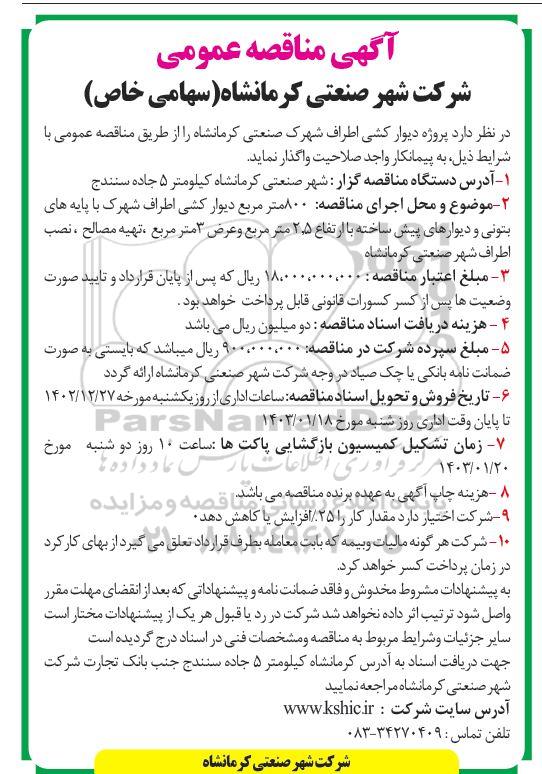 آگهی مناقصه عمومی
شرکت شهر صنعتی کرمانشاه(سهامی خاص)
در نظر دارد پروژه دیوار کشی اطراف شهرک صنعتی کرمانشاه را از طریق مناقصه عمومی با
شرایط ذیل، به پیمانکار واجد صلاحیت واگذار نماید.
۱-آدرس دستگاه مناقصه گزار : شهر صنعتی کرمانشاه کیلومتر ۵ جاده سنندج
۲-موضوع و محل اجرای مناقصه: ۸۰۰متر مربع دیوار کشی اطراف شهرک با پایه های
بتونی و دیوارهای پیش ساخته با ارتفاع ۲,۵ متر مربع وعرض ۳متر مربع ،تهیه مصالح ، نصب
اطراف شهر صنعتی کرمانشاه
۳- مبلغ اعتبار مناقصه : ۱۸,۰۰۰,۰۰۰,۰۰۰ ریال که پس از پایان قرارداد و تایید صورت
وضعیت ها پس از کسر کسورات قانونی قابل پرداخت خواهد بود .
۴ - هزینه دریافت اسناد مناقصه : دو میلیون ریال می باشد
۵- مبلغ سپرده شرکت در مناقصه: ۹۰۰,۰۰۰,۰۰۰ ریال میباشد که بایستی به صورت
ضمانت نامه بانکی یا چک صیاد در وجه شرکت شهر صنعتی کرمانشاه ارائه گردد
۶- تاریخ فروش و تحویل اسناد مناقصه: ساعات اداری از روز یکشنبه مورخه ۱۴۰۲/۱۲/۲۷
تا پایان وقت اداری روز شنبه مورخ ۱۴۰۳/۰۱/۱۸
۷- زمان تشکیل کمیسیون بازگشایی پاکت ها :ساعت ۱۰ روز دو شنبه مورخ
۱۴۰۳/۰۱/۲۰
۸ -هزینه چاپ آگهی به عهده برنده مناقصه می باشد.
۹-شرکت اختیار دارد مقدار کار را ۲۵٪افزایش یا کاهش دهد۰
۱۰- شرکت هر گونه مالیات وبیمه که بابت معامله بطرف قرارداد تعلق می گیرد از بهای کارکرد
در زمان پرداخت کسر خواهد کرد.
به پیشنهادات مشروط مخدوش و فاقد ضمانت نامه و پیشنهاداتی که بعد از انقضای مهلت مقرر
واصل شود ترتیب اثر داده نخواهد شد شرکت در رد یا قبول هر یک از پیشنهادات مختار است
سایر جزئیات وشرایط مربوط به مناقصه ومشخصات فنی در اسناد درج گردیده است
جهت دریافت اسناد به آدرس کرمانشاه کیلومتر ۵ جاده سنندج جنب بانک تجارت شرکت
شهر صنعتی کرمانشاه مراجعه نمایید
آدرس سایت شرکت : www.kshic.ir
تلفن تماس : ۰۸۳-۳۴۲۷۰۴۰۹
شرکت شهر صنعتی کرمانشاه